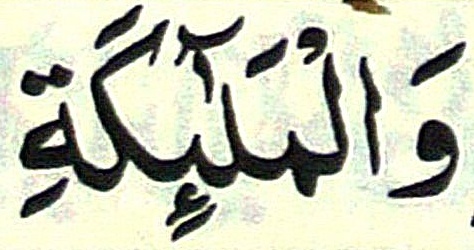 وَالْمَلٰٓئِكَةِ